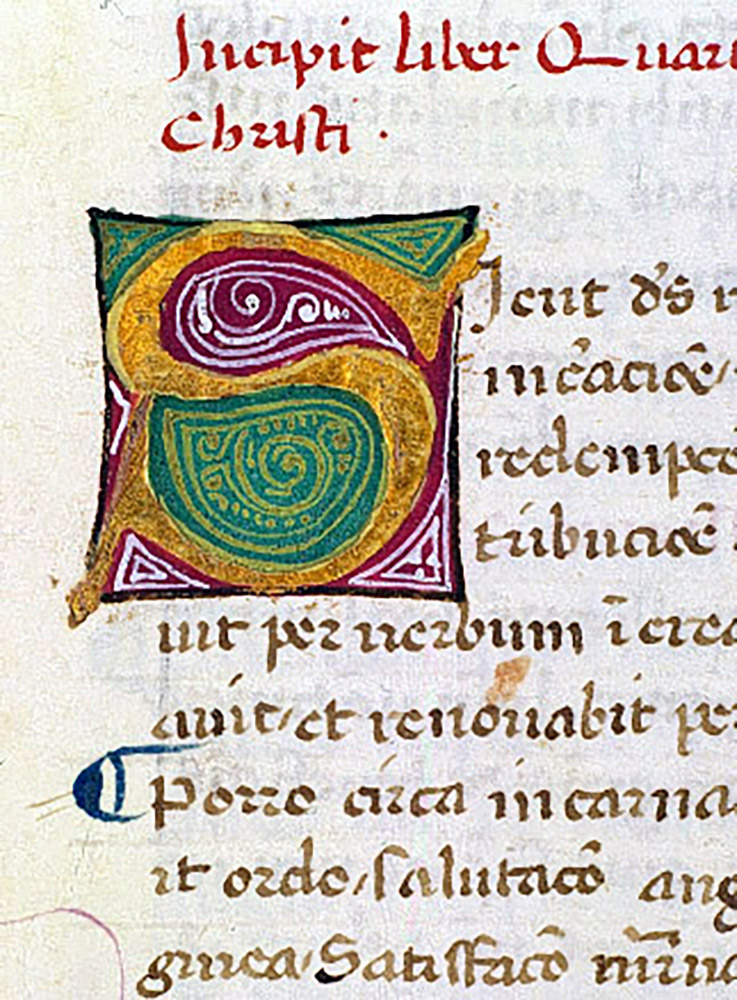 Incipit liber Quart
Christi .
Sicut d̄s r
incᷓacioē
redempcō
tribucioē
uit per uerbum ī crea
auit / et renouabit per
Porro circa incarna
it ordo / salutacō ang
ginea / Satisfacō